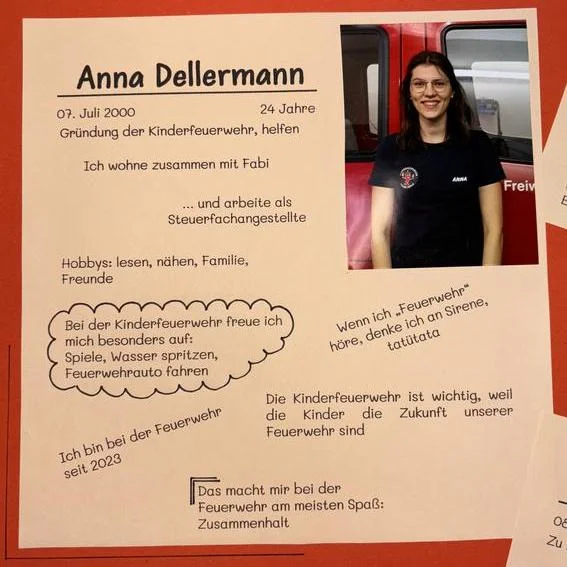 Anna Dellermann
07. Juli 2000 24 Jahre
Gründung der Kinderfeuerwehr, helfen
Ich wohne zusammen mit Fabi
... und arbeite als
Steuerfachangestellte
ANNA
Freiw
Hobbys: lesen, nähen, Familie,
Freunde
Bei der Kinderfeuerwehr freue ich
mich besonders auf:
Spiele, Wasser spritzen,
Feuerwehrauto fahren
Wenn ich „Feuerwehr"
höre, denke ich an Sirene,
tatütata
Die Kinderfeuerwehr ist wichtig, weil
die Kinder die Zukunft unserer
Feuerwehr sind
Ich bin bei der Feuerwehr
seit 2023
Das macht mir bei der
Feuerwehr am meisten Spaß:
Zusammenhalt
Zu